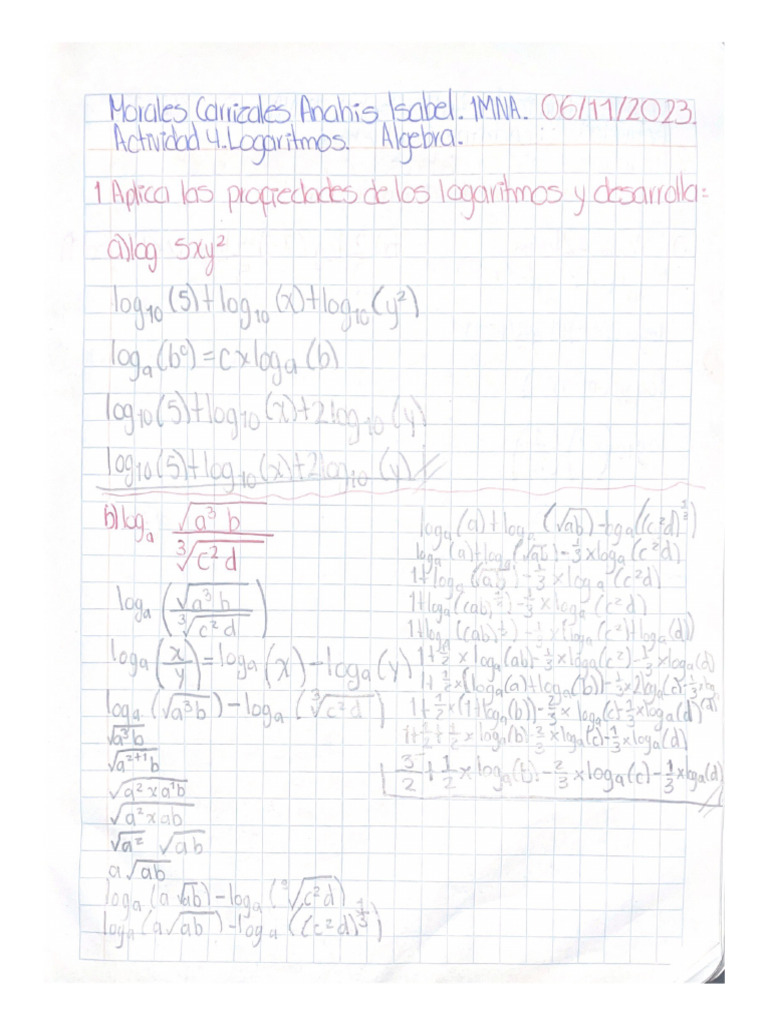 Morales Carrizales Anahis Isabel. 1MNA. 06/11/2023.
Actividad 4. Logaritmos. Algebra.
1 Aplica las propiedades de los logaritmos y desarrolla:
a) log 5xy²
log₁₀(5)+log₁₀(x)+log₁₀(y²)
logₐ(bᶜ)=c×logₐ(b)
log₁₀(5)+log₁₀(x)+2log₁₀(y)
log₁₀(5)+log₁₀(x)+2log₁₀(y)//
b) logₐ √(a³b) / ∛(c²d)
logₐ(√(a³b) / ∛(c²d))
logₐ(x/y)=logₐ(x)-logₐ(y)
logₐ(√(a³b))-logₐ(∛(c²d))
√(a³b)
√(a²⁺¹b)
√(a²×a¹b)
√(a²×ab)
√a² √ab
a√ab
logₐ(a√ab)-logₐ(∛(c²d))
logₐ(a√ab)-logₐ((c²d)^1/3)
logₐ(a)+logₐ(√ab)-logₐ((c²d)^1/3)
logₐ(a)+logₐ(√ab)-1/3×logₐ(c²d)
1+logₐ(√ab)-1/3×logₐ(c²d)
1+logₐ((ab)^1/2)-1/3×logₐ(c²d)
1+logₐ((ab)^1/2)-1/3×(logₐ(c²)+logₐ(d))
1+1/2×logₐ(ab)-1/3×logₐ(c²)-1/3×logₐ(d)
1+1/2×(logₐ(a)+logₐ(b))-1/3×2logₐ(c)-1/3×logₐ(d)
1+1/2×(1+logₐ(b))-2/3×logₐ(c)-1/3×logₐ(d)
1+1/2+1/2×logₐ(b)-2/3×logₐ(c)-1/3×logₐ(d)
3/2+1/2×logₐ(b)-2/3×logₐ(c)-1/3×logₐ(d)//